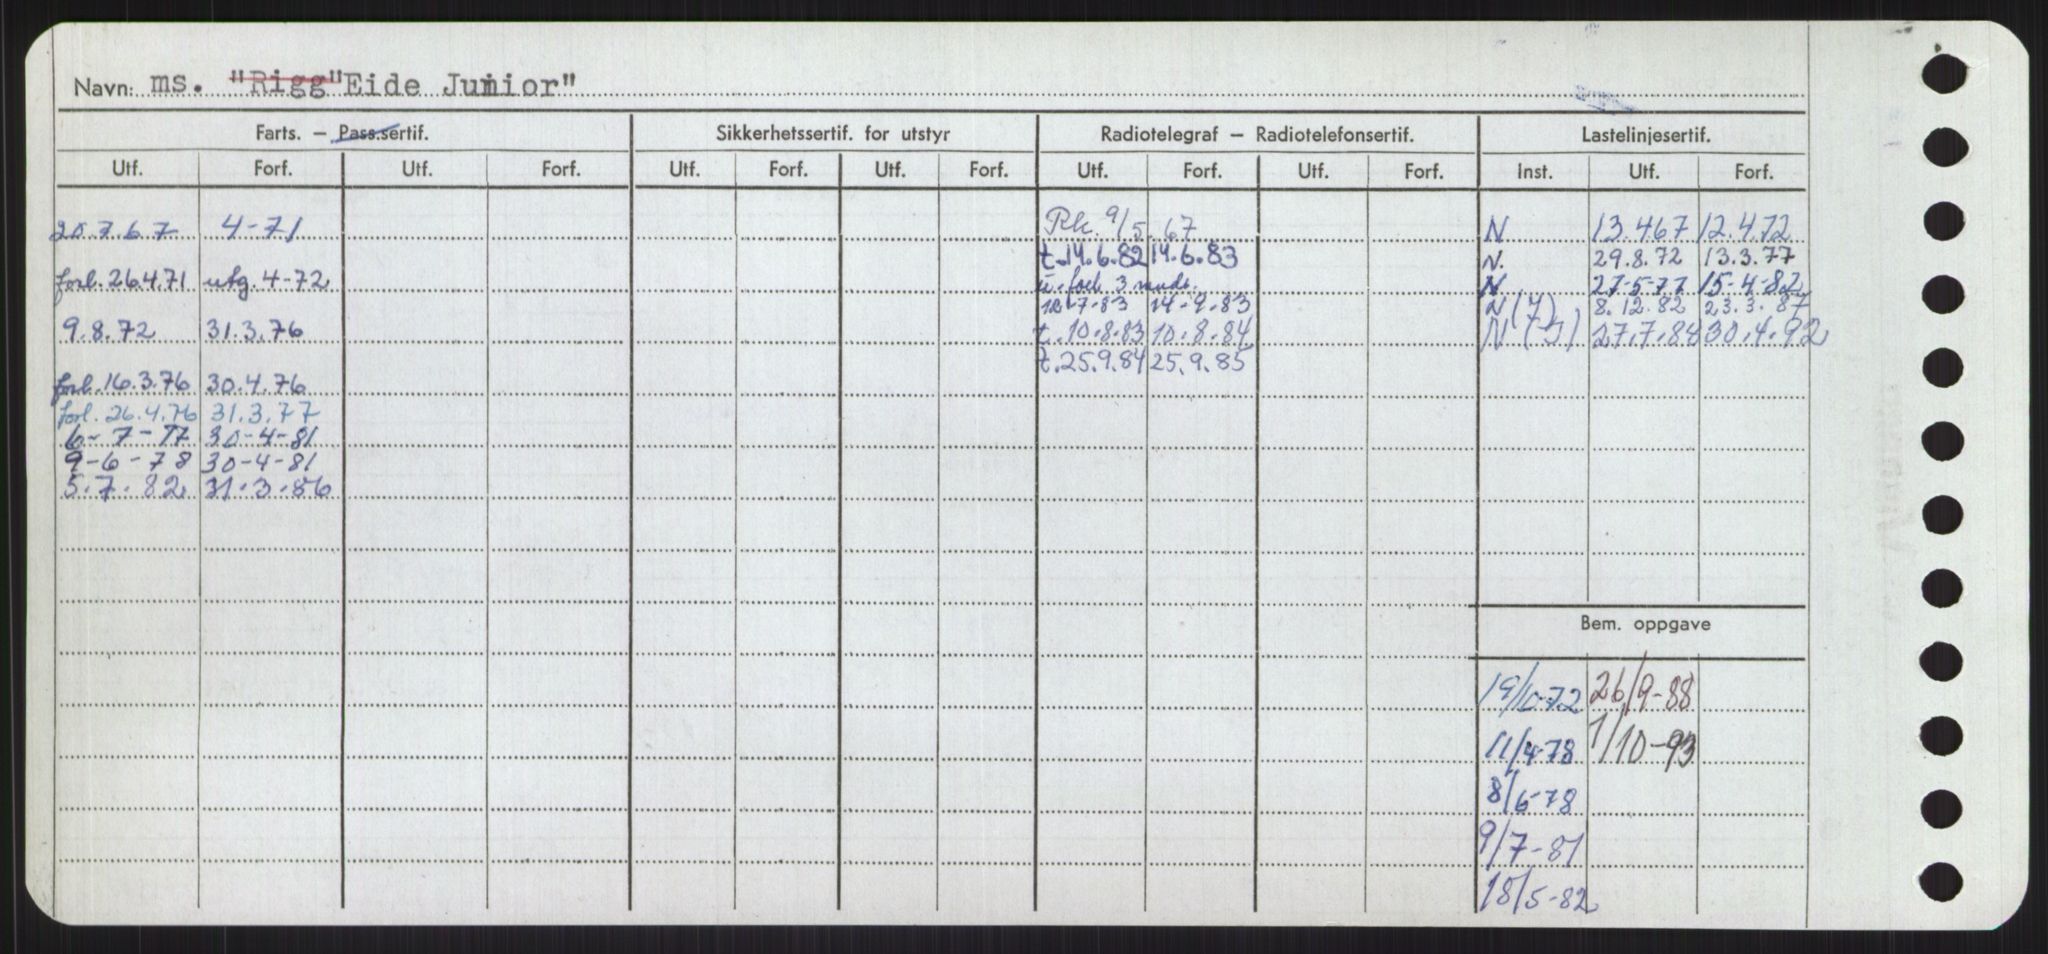 Navn: ms. "Rigg" Eide Junior"
Farts. – Pass.sertif. Sikkerhetssertif. for utstyr Radiotelegraf – Radiotelefonsertif. Lastelinjesertif.
Utf. Forf. Utf. Forf. Utf. Forf. Utf. Forf. Utf. Forf. Utf. Forf. Inst. Utf. Forf.
20.7.67 4-71
forl. 26.4.71 utg. 4-72
9.8.72 31.3.76
forl. 16.3.76 30.4.76
forl. 26.4.76 31.3.77
6-7-77 30-4-81
9-6-78 30-4-81
5.7.82 31.3.86
9/5.67
t.14.6.82 14.6.83
forl 3 mndr.
-7-83 14-9-83
t.10.8.83 10.8.84
t.25.9.84 25.9.85
N 13.467 12.4.72
N. 29.8.72 13.3.77
N 27-5-77 15-4-82
N(7) 8.12.82 23.3.87
N 27.7.84 30.4.92
Bem. oppgave
19/10-72 26/9-88
11/4-78 1/10-93
8/6-78
9/7-81
18/5-82